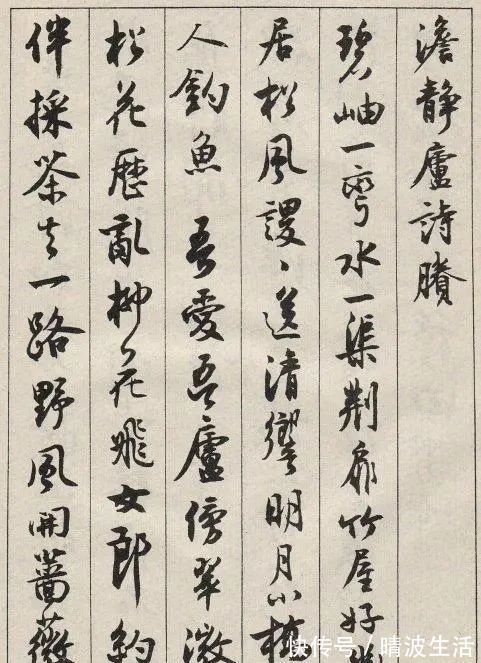 澹靜廬詩賸
碧岫一彎水一渠荊扉竹屋好
居松風謖〻送清響明月小
人釣魚 吾愛吾廬傍翠微
松花歷亂柳花飛女郎約
伴採茶去一路野風開薔薇
快传号/晴波生活